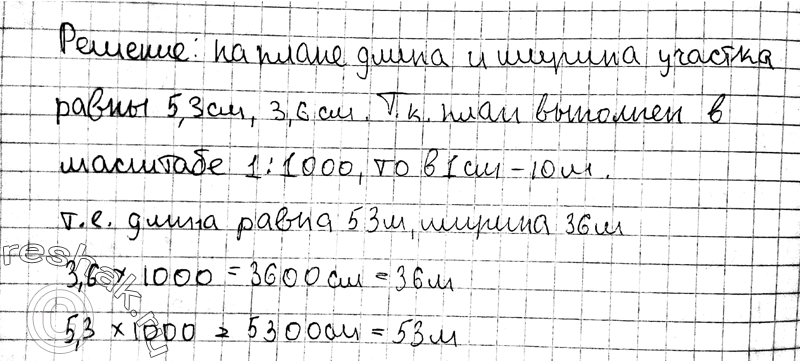 Решение: на плане длина и ширина участка
равны 5,3см, 3,6см. Т.к. план выполнен в
масштабе 1:1000, то в 1см - 10м.
т.е. длина равна 53м, ширина 36м
3,6 × 1000 = 3600см = 36м
5,3 × 1000 = 5300см = 53м
reshak.ru